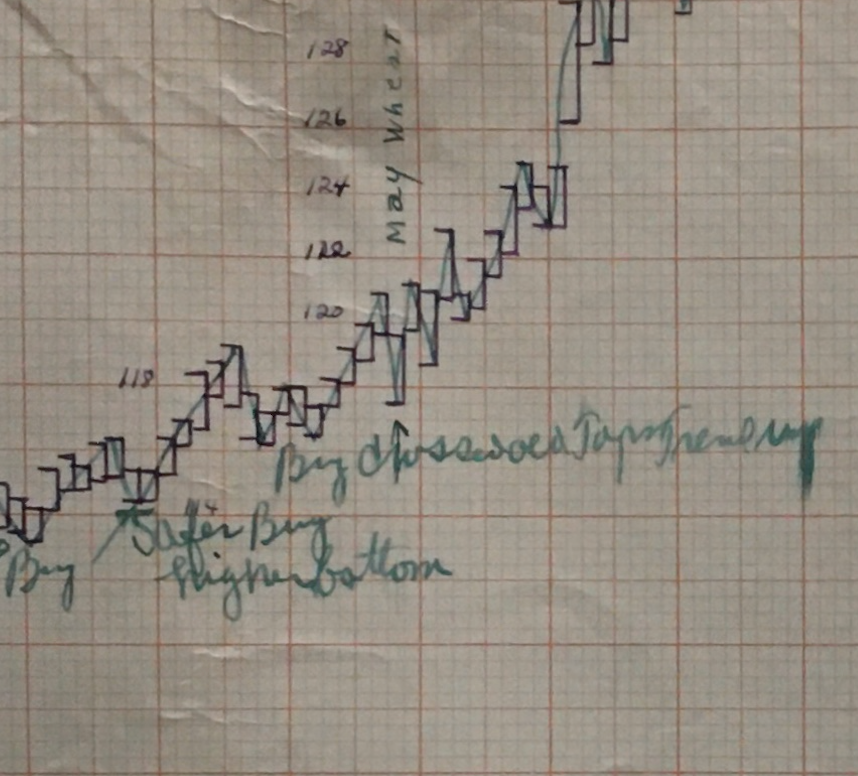 128
126
May Wheat
124
122
120
118
Buy crossed old Tops Trend up
Safer Buy
Buy
higher bottom